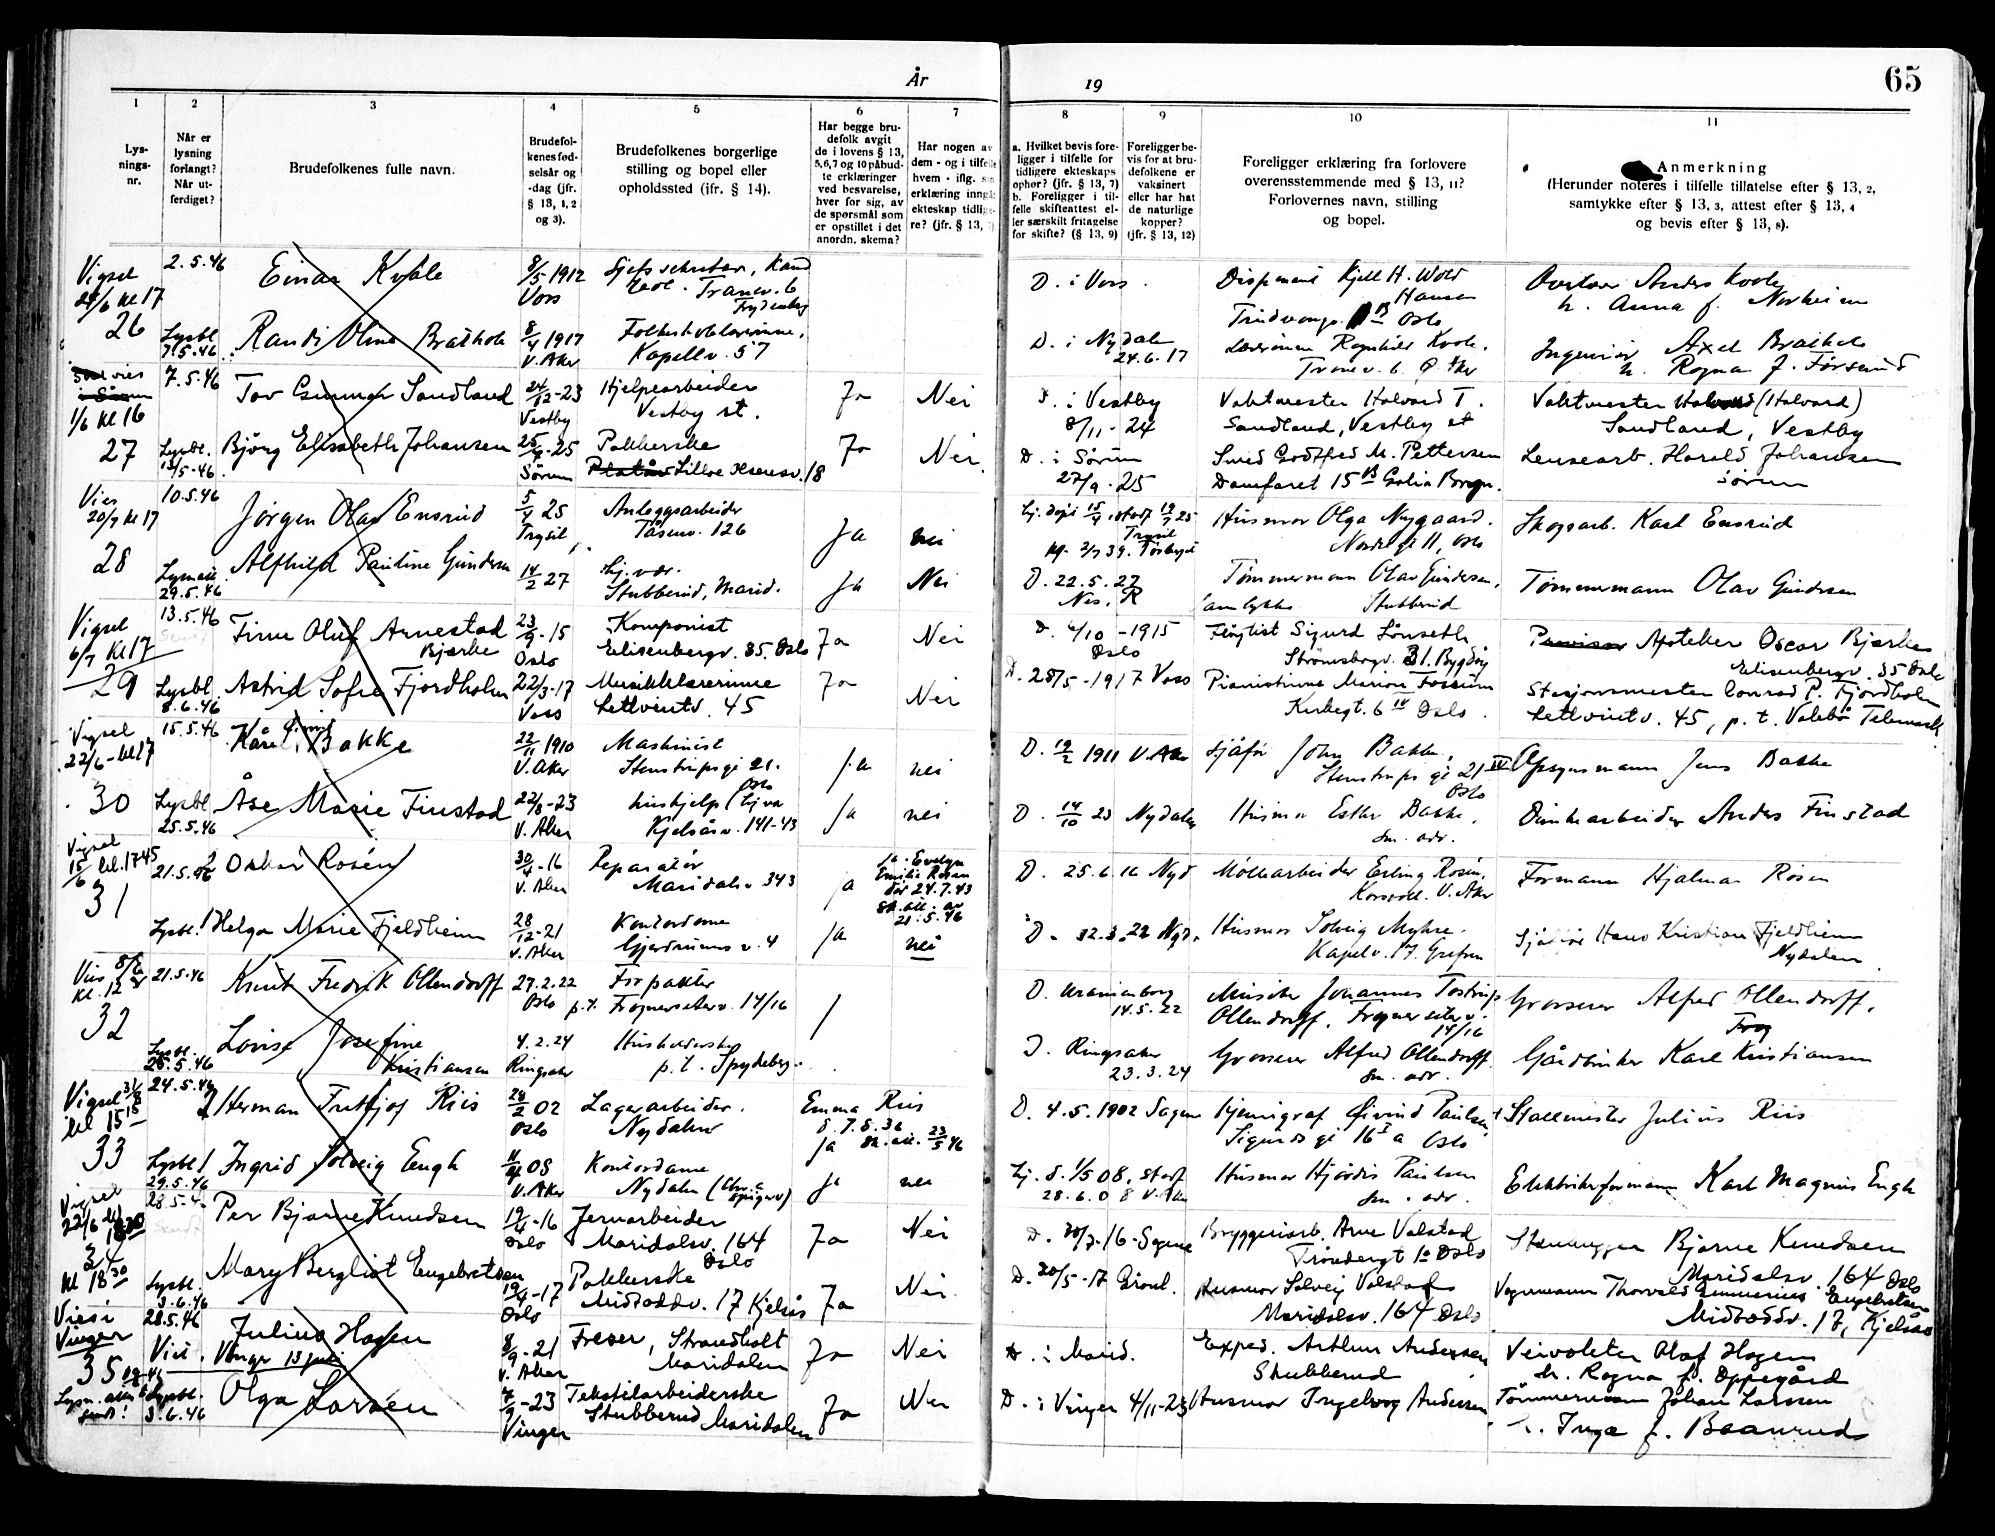 År
19
65
1
2
3
4
5
6
7
8
9
10
11
Lys-
nings-
nr.
Når er
lysning
forlangt?
Når ut-
ferdiget?
Brudefolkenes fulle navn.
Brudefol-
kenes fød-
selsår og
-dag (jfr.
§ 13, 1, 2
og 3).
Brudefolkenes borgerlige
stilling og bopel eller
opholdssted (jfr. § 14).
Har begge bru-
defolk avgit
de i lovens § 13,
5,6,7 og 10 påbud-
te erklæringer
ved besvarelse,
hver for sig, av
de spørsmål som
er opstillet i det
anordn. skema?
Har nogen av
dem - og i tilfelle
hvem - iflg. sin
erklæring inngå
ekteskap tidlige-
re? (jfr. § 13, 7)
a. Hvilket bevis fore-
ligger i tilfelle for
tidligere ekteskaps
ophør? (jfr. § 13, 7)
b. Foreligger i til-
felle skifteattest el-
ler særskilt fritagelse
for skifte? (§ 13, 9)
Foreligger be-
vis for at bru-
defolkene er
vaksinert
eller har hat
de naturlige
kopper?
(jfr. § 13, 12)
Foreligger erklæring fra forlovere
overensstemmende med § 13, 11?
Forlovernes navn, stilling
og bopel.
Anmerkning
(Herunder noteres i tilfelle tillatelse efter § 13, 2,
samtykke efter § 13, 3, attest efter § 13, 4
og bevis efter § 13, 8).
Vigsel
kl 17
26
2.5.46
Einar Kvåle
8/5 1912
Vors
Tranev. 6
D. i Vors.
Disponent Kjell H. Wold
Hansen
Oslo
Anna f. Norheim
Lysbl
7.5.46
Randi Olina Bråthole
8/4 1917
V. Aker
Kapellv. 57
D. i Nydalen
24.6.17
Ingeniør Axel
Ragna f.
1/6 kl 16
27
7.5.46
Tor Gunnar Sandland
24/12-23
Vestby
Hjelpearbeider
Vestby st.
Ja
Nei
D. i Vestby
8/11-24
Vaktmester Halvard T.
Sandland, Vestby st
Vaktmester (Halvard)
Sandland, Vestby
Lysbl.
13/5-46
Bjørg Elisabeth Johansen
Sørum
Pakkerske
18
Ja
Nei.
D. i Sørum
27/9-25
Smed Godtfred M. Pettersen
Damfaret 15 B
Harald Johansen
Sørum
Vies
20/7 kl 17
28
10.5.46
Jørgen Olav Ensrud
5/4 25
Trysil
Anleggsarbeider
Tåsenv. 126
Ja
nei
Husmor Olga Nygaard.
Oslo
Skogsarb. Karl Ensrud
29.5.46
Alfhild Pauline Gundersen
14/2 27
Hj. vær.
Stubberud, Marid.
Ja
Nei
D. 22.5.27
Nes, R
Tømmermann Olav Gundersen,
Stubberud
Tømmermann Olav Gundersen
Vigsel
6/7 kl 17
29
13.5.46
Finn Oluf Arnestad
Bjerke
23/9-15
Oslo
Komponist
Elisenbergv. 35. Oslo
Ja
Nei
D. 6/10-1915
Oslo
Sigurd Lønseth
Strømsborgv. 31. Bygdøy
Apoteker Oscar Bjerke
Elisenbergv. 35 Oslo
Lysbl
8.6.46
Astrid Sofie Fjordholm
22/3-17
Voss
Musikklærerinne
Lettvintv. 45
Ja
Nei
D. 28/5-1917 Voss
Pianistinne Marion Fossum
Kirkegt. 6 Oslo.
Stasjonsmester Conrad P. Fjordholm
Lettvintv. 45, p.t. Valebø Telemark
Vigsel
22/6-kl 17
30
15.5.46
Kåre Bakke
22/11 1910
V. Aker
Maskinist
Stenstrups gt 21.
Oslo
Ja
nei
D. 19/2 1911 V. Aker
Sjåfør John Bakke,
Stenstrups gt 21 IV
Oslo
Opsynsmann Jens Bakke
Lysbl
25.5.46
Åse Marie Finstad
22/8-23
V. Aker
Kjelsåsv. 141-43
Ja
nei
D. 14/10 23 Nydalen
Husmor Esther Bakke,
sm. adr.
Anders Finstad
Vigsel
15/6 kl. 17 45
31
21.5.46
Oskar Rosén
30/4-16
V. Aker
Reparatør
Maridalsv 343
Ja
ja. Evelyn
Emilie Rosen
død 24.7.43
21.5.46
D. 25.6.16 Nyd
Møllearbeider Erling Rosén,
V. Aker
Formann Hjalmar Rosen
Lysbl.
Helga Marie Fjeldheim
28/12-21
V. Aker
Kontordame
Gjerdrums v. 4
Ja
nei
Husmor Solveig Myhre.
Kapelv. 17. Grefsen
Hans Kristian Fjeldheim
Nydalen
Vies
Kl. 12
32
21.5.46
Knut Fredrik Ollendorff
27.2.22
Oslo
Forpakter
p.t. Frognerseterv. 14/16
D. Uranienborg
14.5.22
Musiker Johannes Tostrup
Ollendorff, Frognerseterv.
14/16
Grosserer Alfred Ollendorff,
Lysbl.
25.5.46
Lovise Josefine
Kristiansen
4.2.24
Ringsaker
Husholderske
p.t. Spydeberg.
D. Ringsaker
23.3.24
Grosserer Alfred Ollendorff
sm. adr.
Gårdbruker Karl Kristiansen
Vigsel
kl 15 15
33
24.5.46
Herman Fritjof Riis
28/2 02
Oslo
Lagerarbeider.
Nydalen
Emma Riis
Ja
D. 4.5.1902 Sagene
Kjemigraf Øivind Paulsen
Sigurds gt 16 Oslo
Stallmester Julius Riis
Lysbl
29.5.46
Ingrid Solveig Engh
08
V. Aker
Kontordame
Nydalen
Ja
nei
28.6.08 V. Aker
Husmor Hjørdis Paulsen
sm. adr.
Elektrikerformann Karl Magnus Engh
Vigsel
22/6
34
kl 18 30
28.5.46
Per Bjarne Knudsen
19/4-16
Oslo
Jernarbeider
Maridalsv. 164
Oslo
Ja
Nei
Bryggeriarb. Arne Valstad
Trondergt 1a Oslo
Bjarne Knudsen
Maridalsv. 164 Oslo
Lysbl.
3.6.46
Mary Bergliot Engebretsen
19/4-17
Oslo
Pakkerske
Midtoddv. 17 Kjelsås
Ja
Nei.
D. 20/5-17
Husmor Solveig Valstad
Maridalsv. 164 Oslo
Vognmann Thorvald Engebretsen
Midtoddv. 17, Kjelsås
Vies i
Vinger
35
28.5.46
Julius Hagen
Viet. Vinger 13 juli
8/9-21
V. Aker
Freser, Strandholt
Maridalen
Ja
Nei
D. i Marid.
Exped. Arthur Andersen
Stubberud
Veivokter Olaf Hagen
h. Ragna f. Oppegård
Lysbl.
3.6.46
Olga Larsen
-23
Vinger
Tekstilarbeiderske
Stubberud Maridalen
Ja
Nei
D. i Vinger 4/11-23
Husmor Ingeborg Andersen
Tømmermann Johan Larssen
h. Inga f. Baanrud